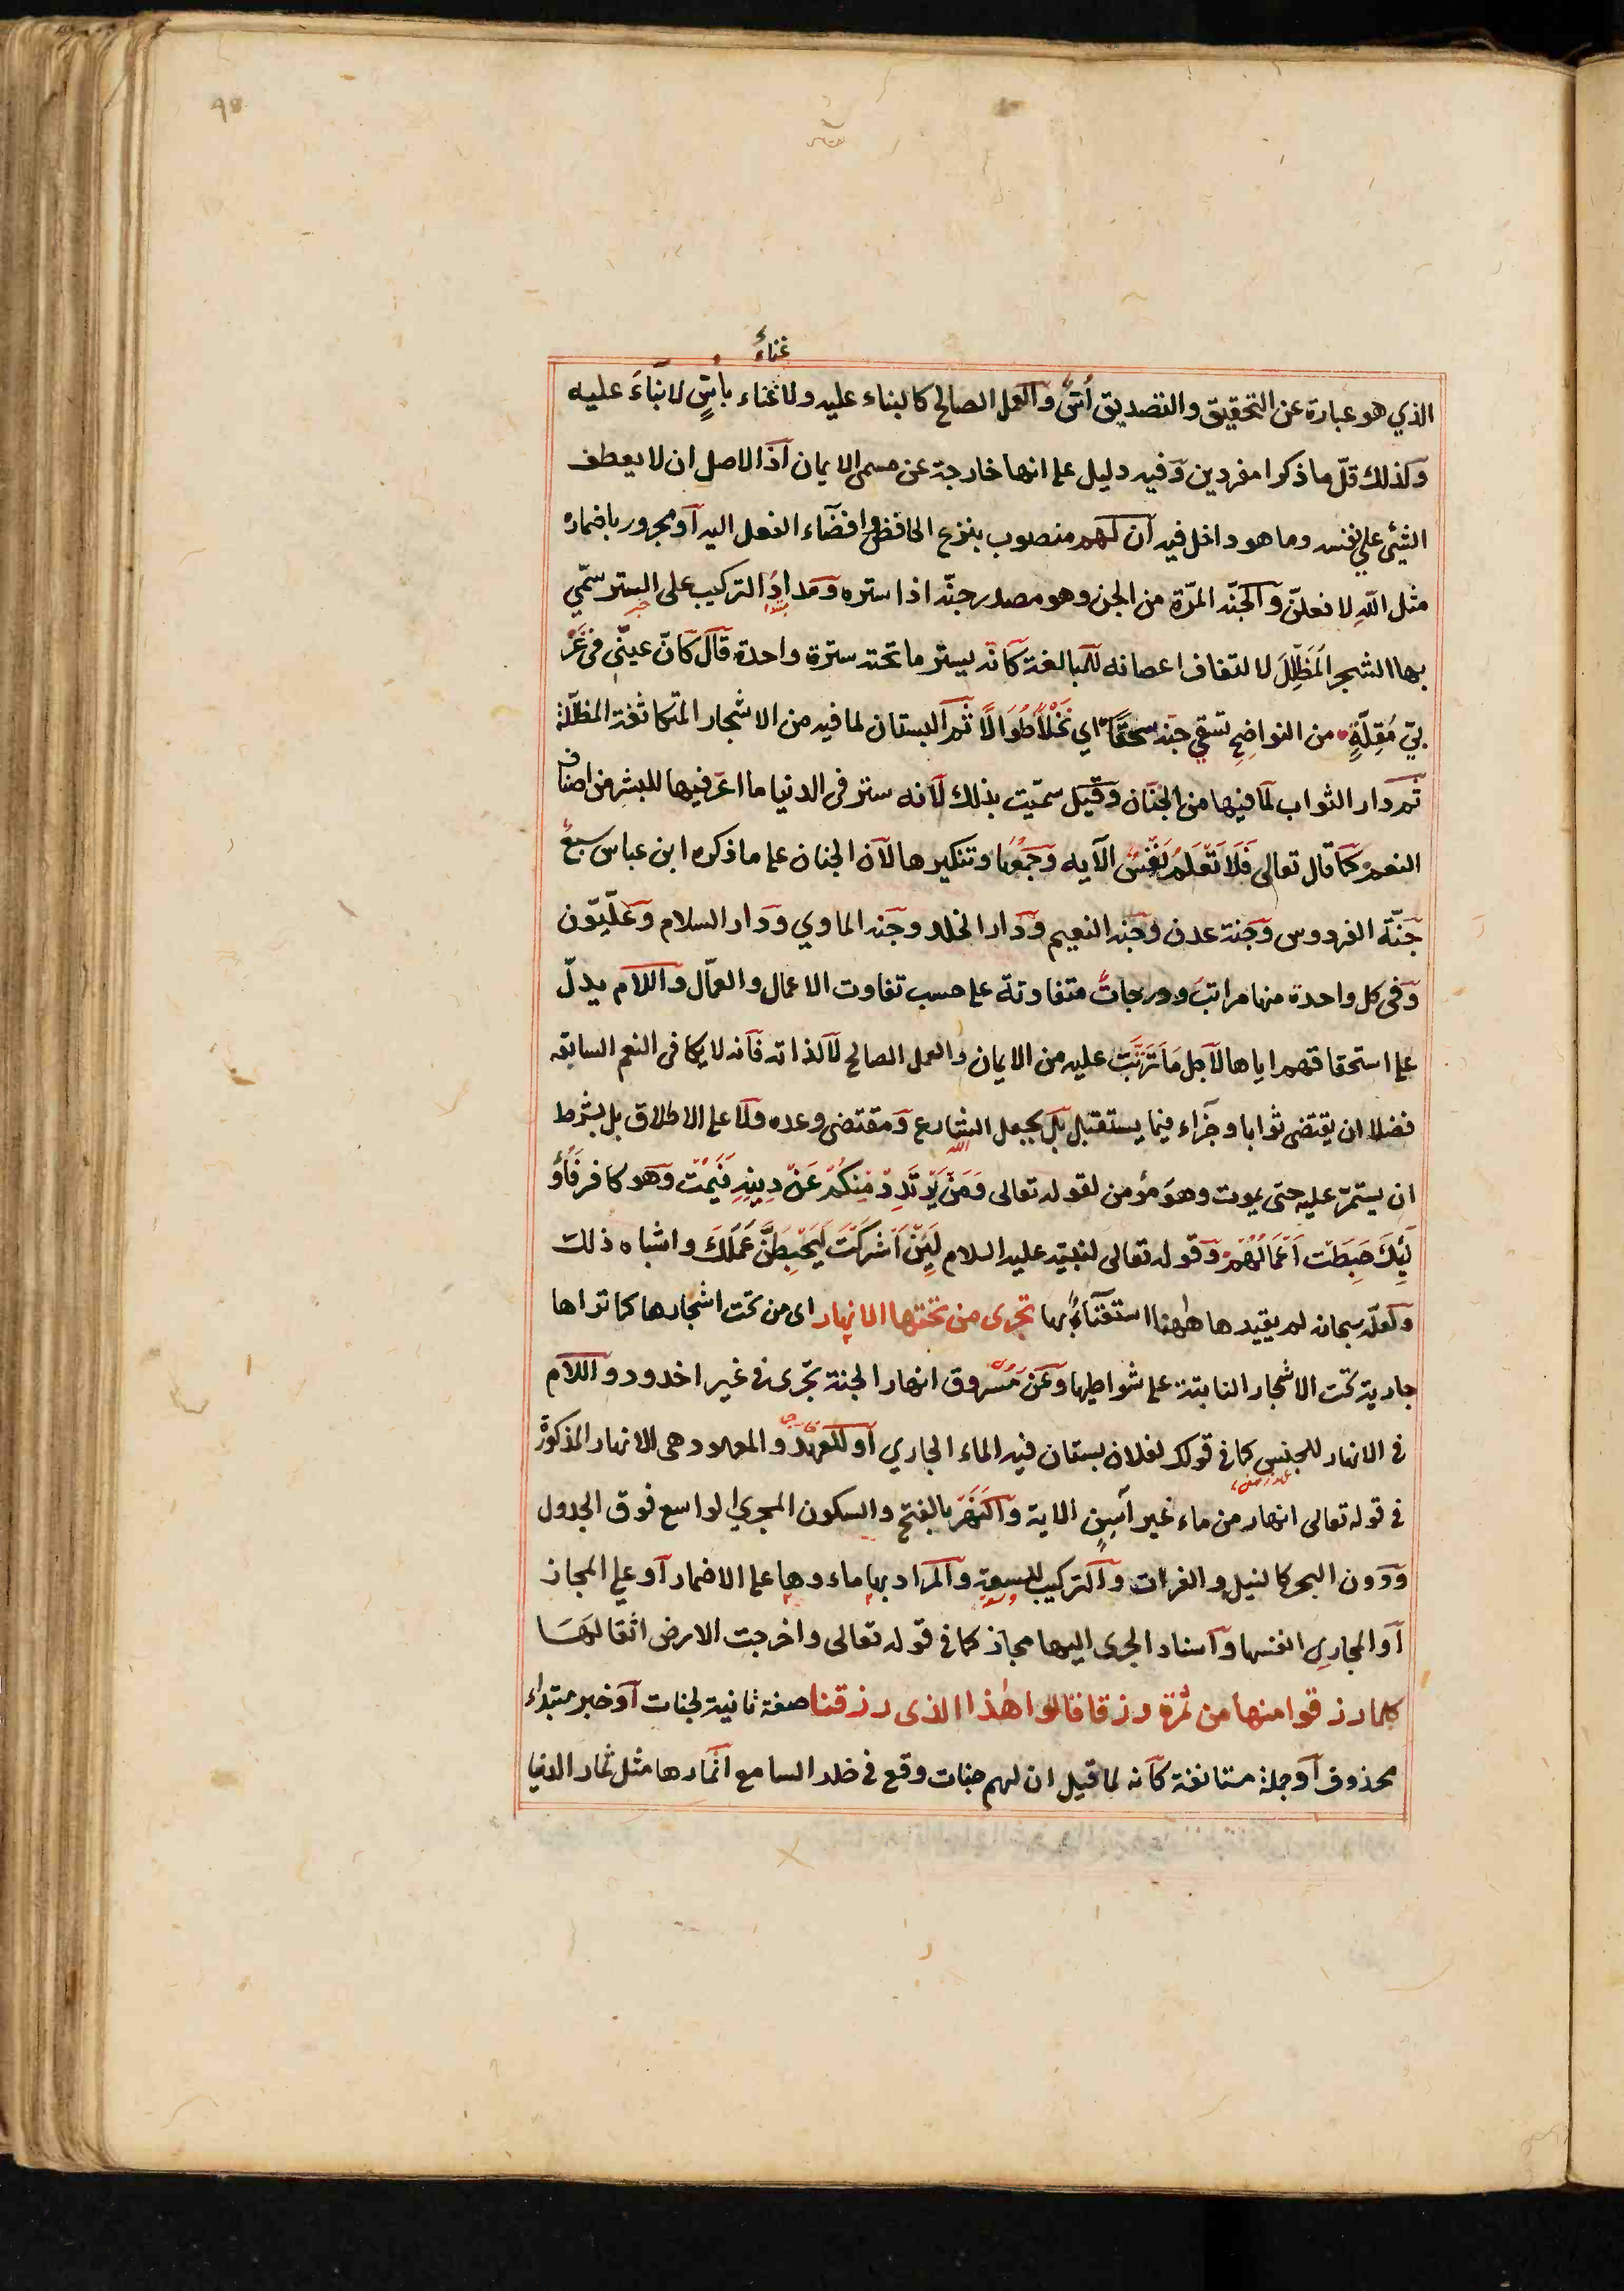 غناءَ
الذي هو عبارة عن التحقيق والتصديق أُسٌّ وَالعمل الصالح كالبناء عليه ولا غناء بأُسٍّ لا بناءَ عليه
وَلذلك قلّ ما ذكرا مفردين وَفيه دليل على انها خارجة عن مسمى الايمان اذَ الاصل ان لا يعطف
الشيئ على نفسه وما هو داخل فيه ان لَهم منصوب بنزع الخافض وافضاء الفعل اليه اَو مجرور باضماره
مثل اللهِ لا فعلنّ وَالجنّه المرّة من الجن وهو مصدر جنّه اذا ستره وَمدارُ التركيب على الستر سمّي
بها الشجر المُظَلِّلَ لا لتفاف اعصانه للمبالغة كانّه يستر ما تحته سترة واحدة قاَل كَانّ عينَيّ في غَرْ
بيّ مُقِلّةٍ • من النواضِحِ تسَقي جنّه سحقًا اي نَخْلًا طُوَالًا ثُمّ البستان لما فيه من الاشجار المتكاثفة المظلّلة
ثَم دار الثواب لَما فيها من الجنَان وَقيَل سمّيت بذلك لاَنه ستر في الدنيا ما اعَر فيها للبشر من اصناف
النعم كمَا قال تعالى فَلَا تَعْلَمُ نَفْسٌ الآيه وَجَمْعُها وتنكيرها لاَن الجنان على ما ذكره ابن عباس سبعٌ
جَنّة الفردوس وَجنة عدن وَجنه النعيم وَدَار الخلد وجنه الماوي ودَار السلام وَعلّيّون
وَفى كل واحدة منها مراتبُ ودرجاتٌ متفاوتة على حسب تفاوت الاعمال والعمّال وَاللام يدلّ
على استحقاقهم اياها لاَجل مَا تَرَتَّبَ عليه من الايمان والعمل الصالح لاَ لذاته فاَنه لا يكافى النعم السابقه
فضلا ان يقتضى ثوابا وجزاء فيما يستقبل بَل بجعل الشارع وَمقتضى وعده وَلا على الاطلاق بل بشرط
ان يستمرّ عليه حتى يموت وهوَ مؤمن لقوله تعالى وَمَنْ يَرْتَدِدْ مِنكُمْ عَنْ دِينِهِ فَيَمُتْ وَهو كافر فَأُو
لَئِكَ حَبِطَتْ اَعْمَالُهُمْ وَقوله تعالى لنبيّه عليه السلام لَئِنْ اَشْرَكْتَ لَيَحْبِطَنَّ عَمَلُكَ واشباه ذلك
وَلعلّه سبحانه لم يقيدها ههنا استغنَاءً بها تجرى من تحتها الانهار اى من تحت اشجارها كما تراها
جارية تحت الاشجار النابتة على شواطيها وَعَنْ مَسْروق انهار الجنة تجرى في غير اخدود وَاللام
في الانهار للجنس كما في قولك لفلان بستان فيه الماء الجاري اَو للعهد والمعهود هى الانهار المذكورة
في قوله تعالى انهار من ماء غير آسِنٍ الاية وَالنَهَر بالفتح والسكون المجري الواسع فوق الجدول
وَدون البحر كالنيل والفرات وَالتركيب للسعة وَالمراد بها ماءوها على الاضمار اَو على المجاز
اَو المجارِى انفسها واَسناد الجرى اليها مجاز كما في قوله تعالى واخرجت الارض اثقالهَا
كلما رزقوا منها من ثمرة رزقا قالوا هٰذا الذى رزقنا صفة ثانية لجنات اَو خبر مبتداء
محذوف اَو جملة مستانفة كاَنه لما قيل ان لهم جنات وقع في خلد السامع اثمارها مثل ثمار الدنيا